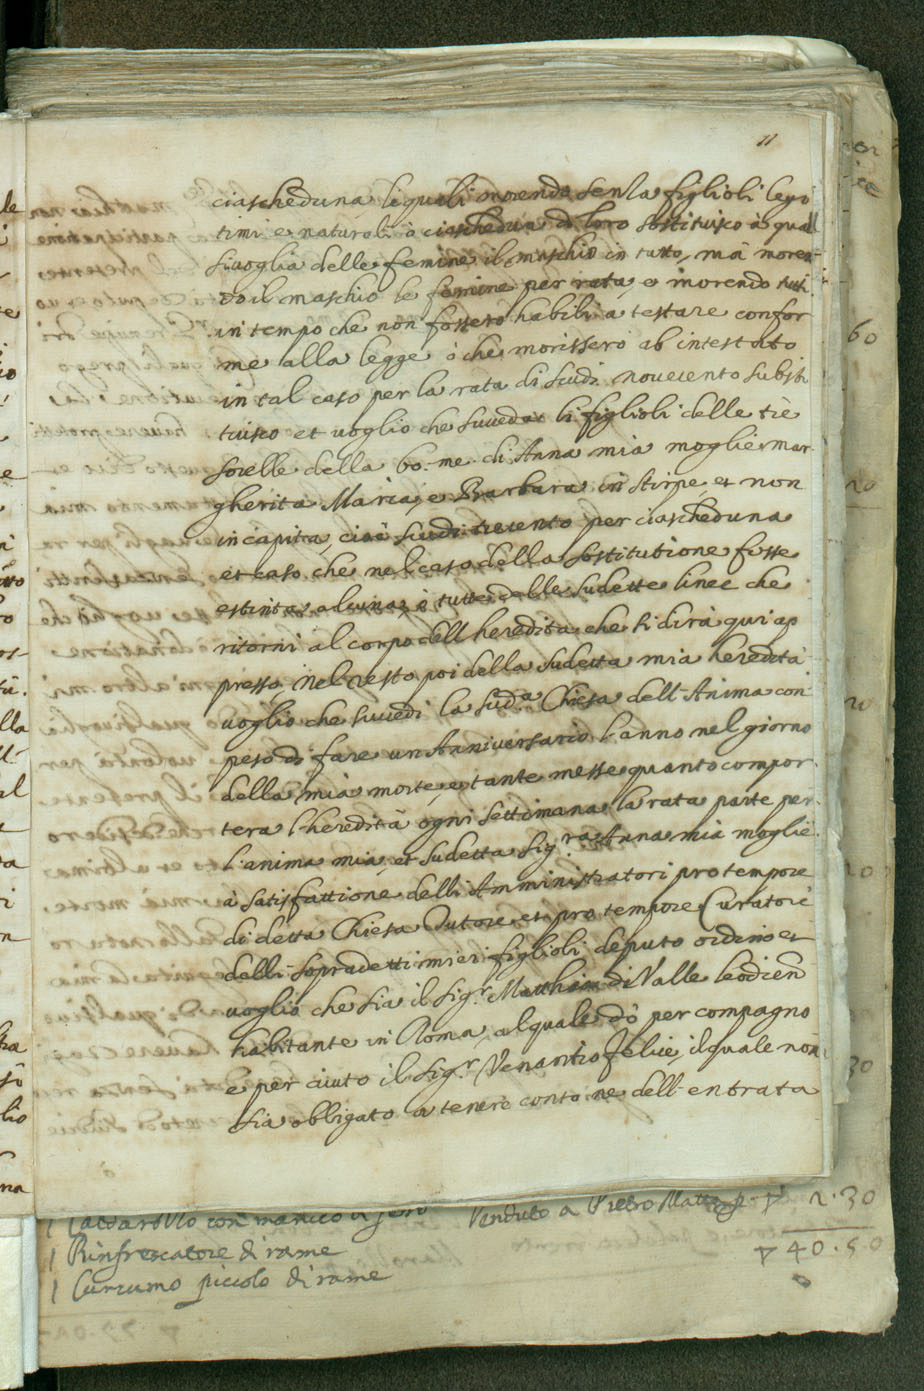 11
ciascheduna, le quali morendo senza figlioli legi
timi e naturali à ciaschedun di loro sostituisco à qual
sivoglia delle femine il maschio in tutto, mà moren
do il maschio le femine per rata, e morendo tutti
in tempo che non fossero habili a testare confor
me alla legge ò che morissero ab intestato
in tal caso per la rata di scudi novecento substi
tuisco et voglio che succeda li figlioli delle trè
sorelle della bo. me. di Anna mia moglie mar
gherita Maria, e Barbara in stirpe et non
in capita, cioè scudi trecento per ciascheduna
et caso che nel caso della sostitutione fusse
estinta alcuna, ò tutte delle sudette linee che
ritorni al corpo dell heredita che si dirà qui ap
presso. Nel resto poi della sudetta mia heredità
voglio che succedi la sud.a Chiesa dell Anima con
peso di fare un Anniversario l'anno nel giorno
della mia morte, e tante messe quanto compor
tera l'heredità ogni settimana la rata parte per
l'anima mia, et sudetta Sig.ra Anna mia moglie
à satisfattione delli Amministratori pro tempore
di detta Chiesa Tutore et pro tempore Curatore
delli sopradetti miei figlioli deputo ordino et
voglio che sia il Sig.r Matthia di Valle leodien
habitante in Roma, al quale dò per compagno
e per aiuto il Sig.r Venantio Felice, il quale non
sia obbligato a tenere conto ne dell entrata
1 con manico di ferro Venduto a Pietro 2.30
1 Rinfrescatore di rame 40.50
1 Cuccumo piccolo di rame
60
20
20
20
30